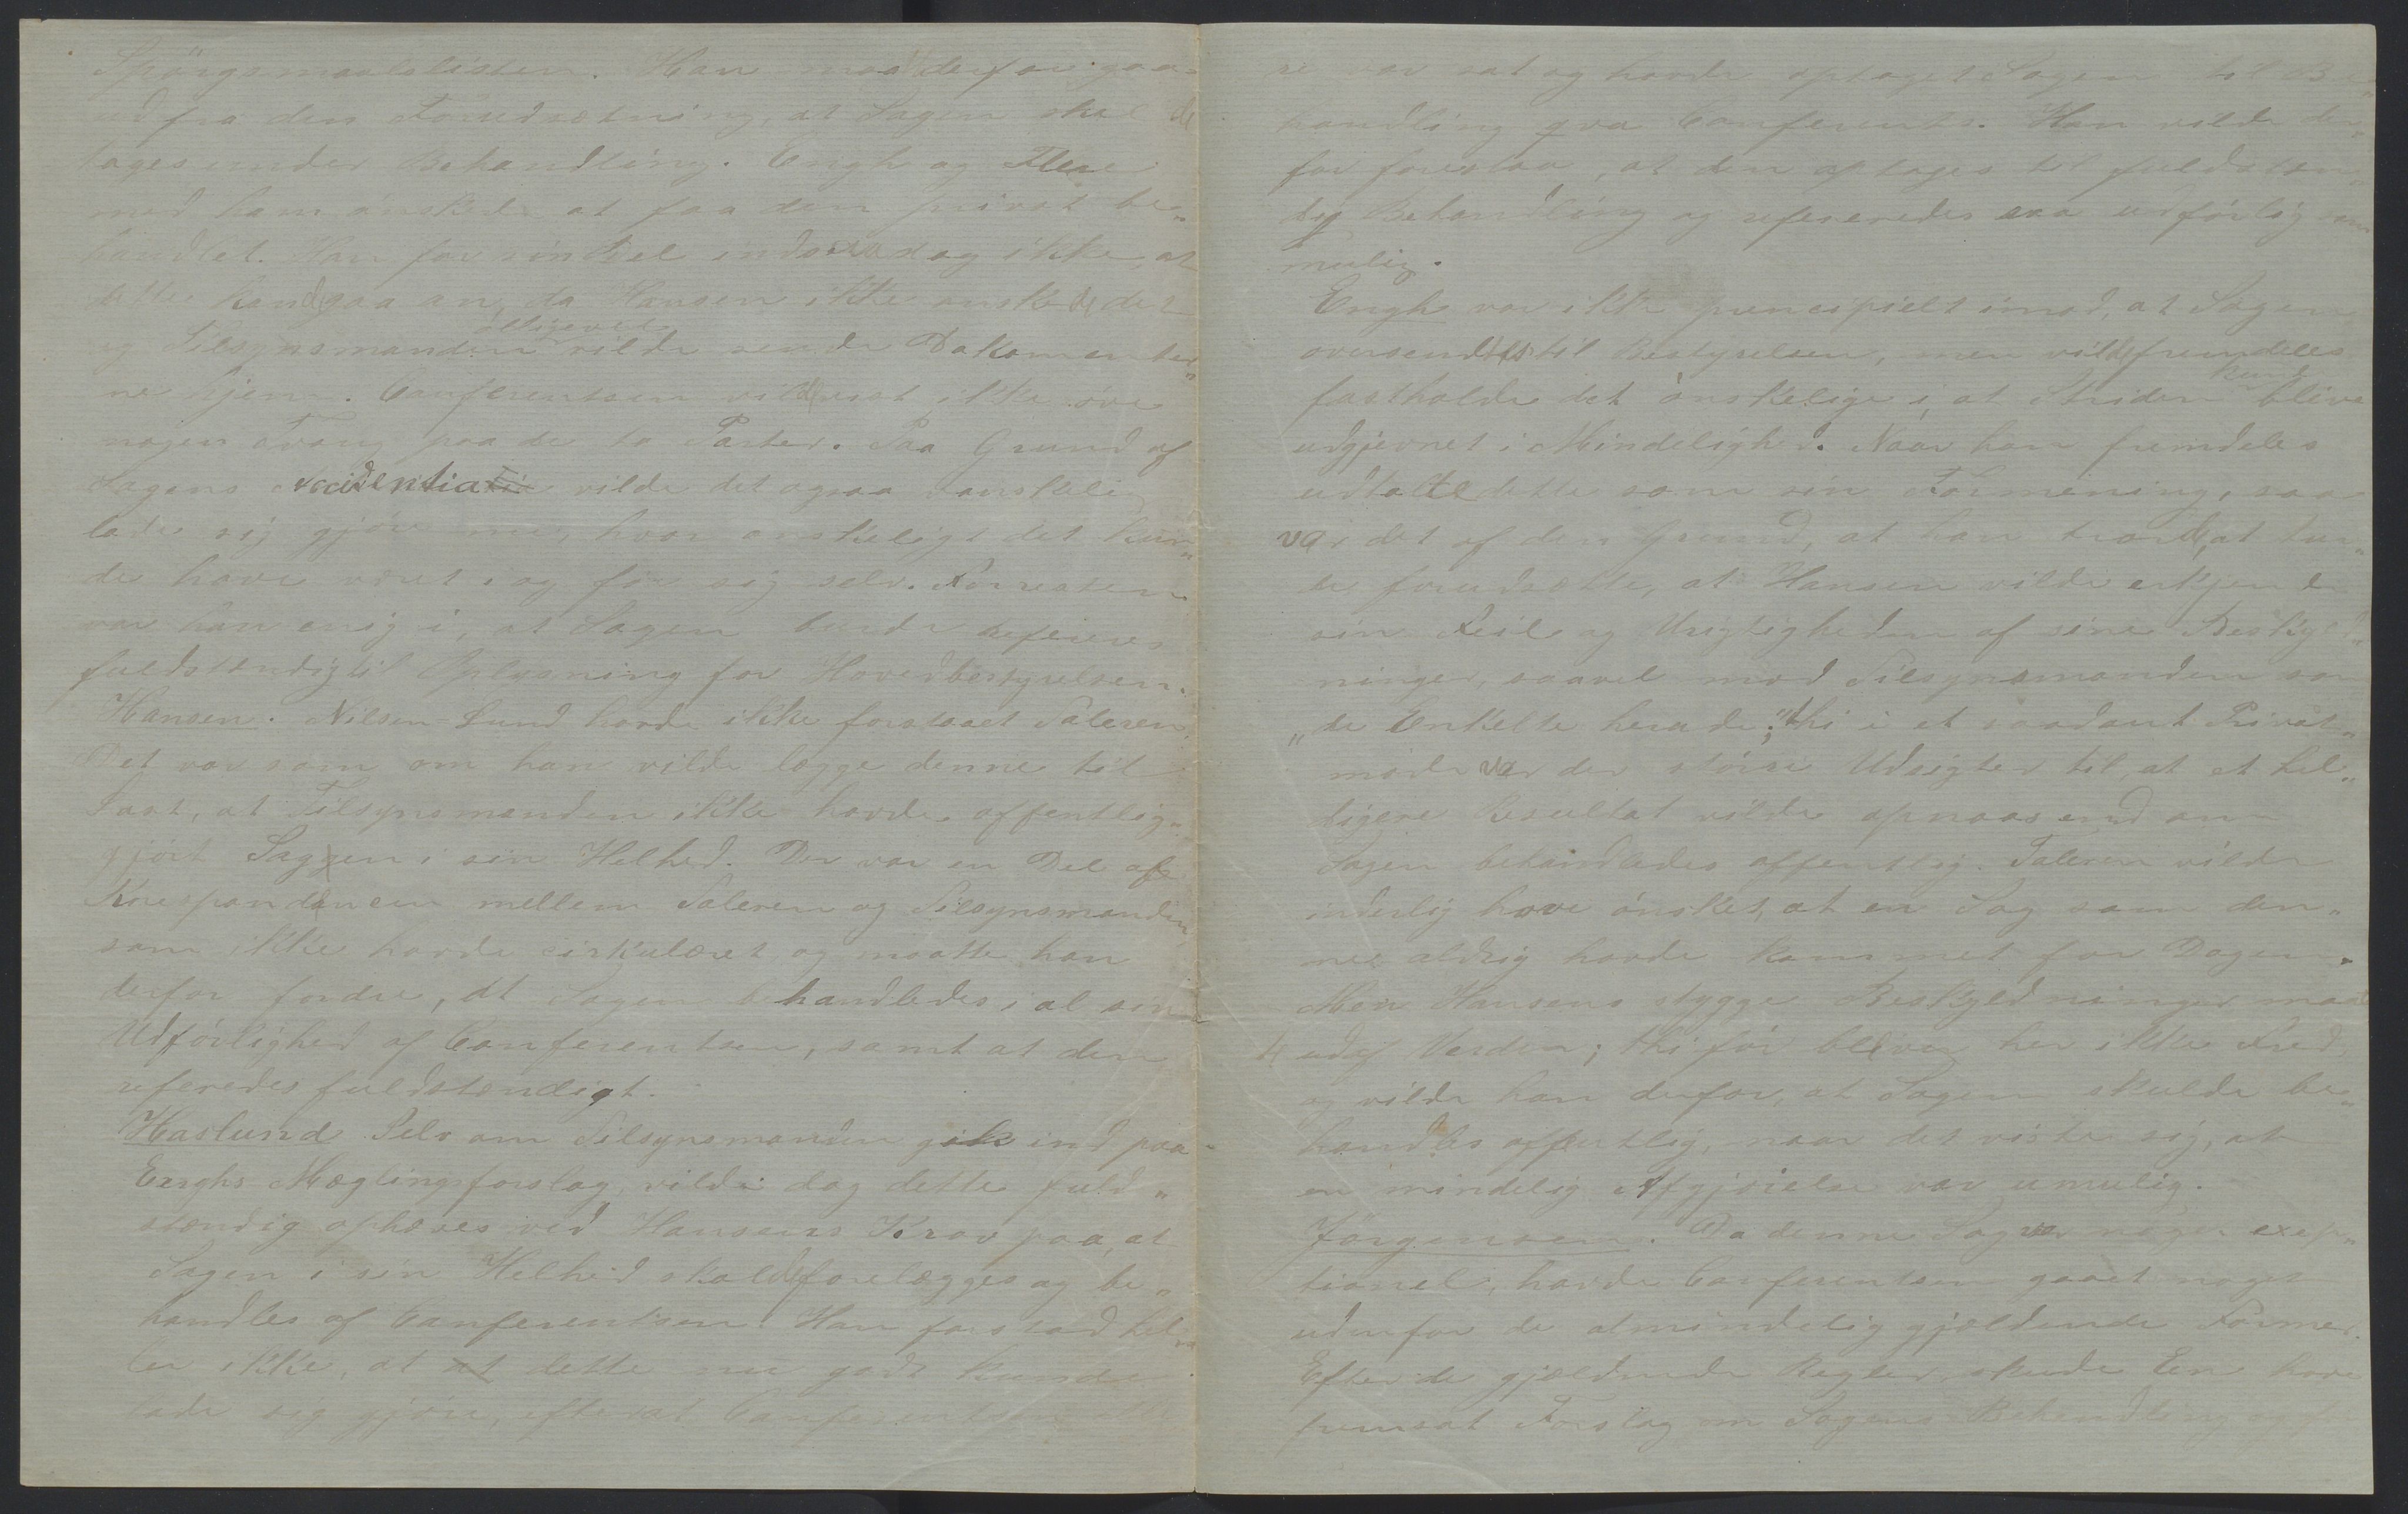 Spörgsmaalslisten. Han maa derfor gaa
ud fra den Forudsætning, at Sagen skal
tages under Behandling. Engh og Flere
med ham ønskede at faa den privat be„
handlet. Han for sin Del indsaa dog ikke, at
dette kunde gaa an, da Hansen ikke ønskede det
og Tilsynsmanden alligevel vilde sende Dokumenter„
ne hjem. Conferentsen vilde vist ikke øve
nogen Tvang paa de to Parter. Paa Grund af
Sagens vilde det ogsaa vanskelig
lade sig gjøre nu, hvor ønskeligt det kun„
de have været i og for sig selv. Forresten
var han enig i, at Sagen burde refereres
fuldstændig til Oplysning for Hovedbestyrelsen.
Hansen. Nilsen-Lund havde ikke forstaaet Taleren.
Det var som om han vilde lægge denne til
Last, at Tilsynsmanden ikke havde offentlig„
gjört Sagen i sin Helhed. Der var en Del af
Korespondencen mellem Taleren og Tilsynsmanden,
som ikke havde cirkulæret, og maatte han
derfor fordre, at Sagen behandledes i al sin
Udförlighed af Conferentsen, samt at den
referedes fuldstændigt.
Haslund Selv om Tilsynsmanden gik ind paa
Enghs Mæglingsforslag, vilde dog dette fuld„
stændig ophæves ved Hansens Krav paa, at
Sagen i sin Helhed skulde forelægges og be„
handles af Conferentsen. Han forstod hel„
ler ikke, at dette nu godt kunde
lade sig gjöre, efterat Conferentsen
re var sat og havde optaget Sagen til Be„
handling qva Conferents. Han vilde der„
for foreslaa, at den optages til fuldstæn„
dig Behandling og refereredes saa udförlig som
mulig.
Engh var ikke principielt imod, at Sagen
oversendtes til Bestyrelsen, men vilde fremdeles
fastholde det ønskelige i, at Striden kunde blive
udgjevnet i Mindelighed. Naar han fremdeles
udtalte dette som sin Formening, saa
var det af den Grund, at han troede, at tur„
de forudsætte, at Hansen vilde erkjende
sin Feil og Urigtigheden af sine Beskyld„
ninger, saavel mod Tilsynsmanden som
„de Enkelte herude;" thi i et saadant Privat„
møde var der störe Udsigter til, at et hel„
digere Resultat vilde opnaaes end om
Sagen behandledes offentlig. Taleren vilde
inderlig have önsket, at en Sag som den„
ne aldrig havde kommet for Dagen.
Men Hansens stygge Beskyldninger maat
te ud af Verden; thi för bliver her ikke Fred,
og vilde han derfor, at Sagen skulde be„
handles offentlig, naar det viste sig, at
en mindelig Afgjörelse var umulig.
Jörgensen. Da denne Sag var noget exep„
tionel, havde Conferentsen gaaet noget
udenfor de almindelig gjældende Former.
Efter de gjældende Regler skulde Een have
fremsat Forslag om Sagens Behandling og